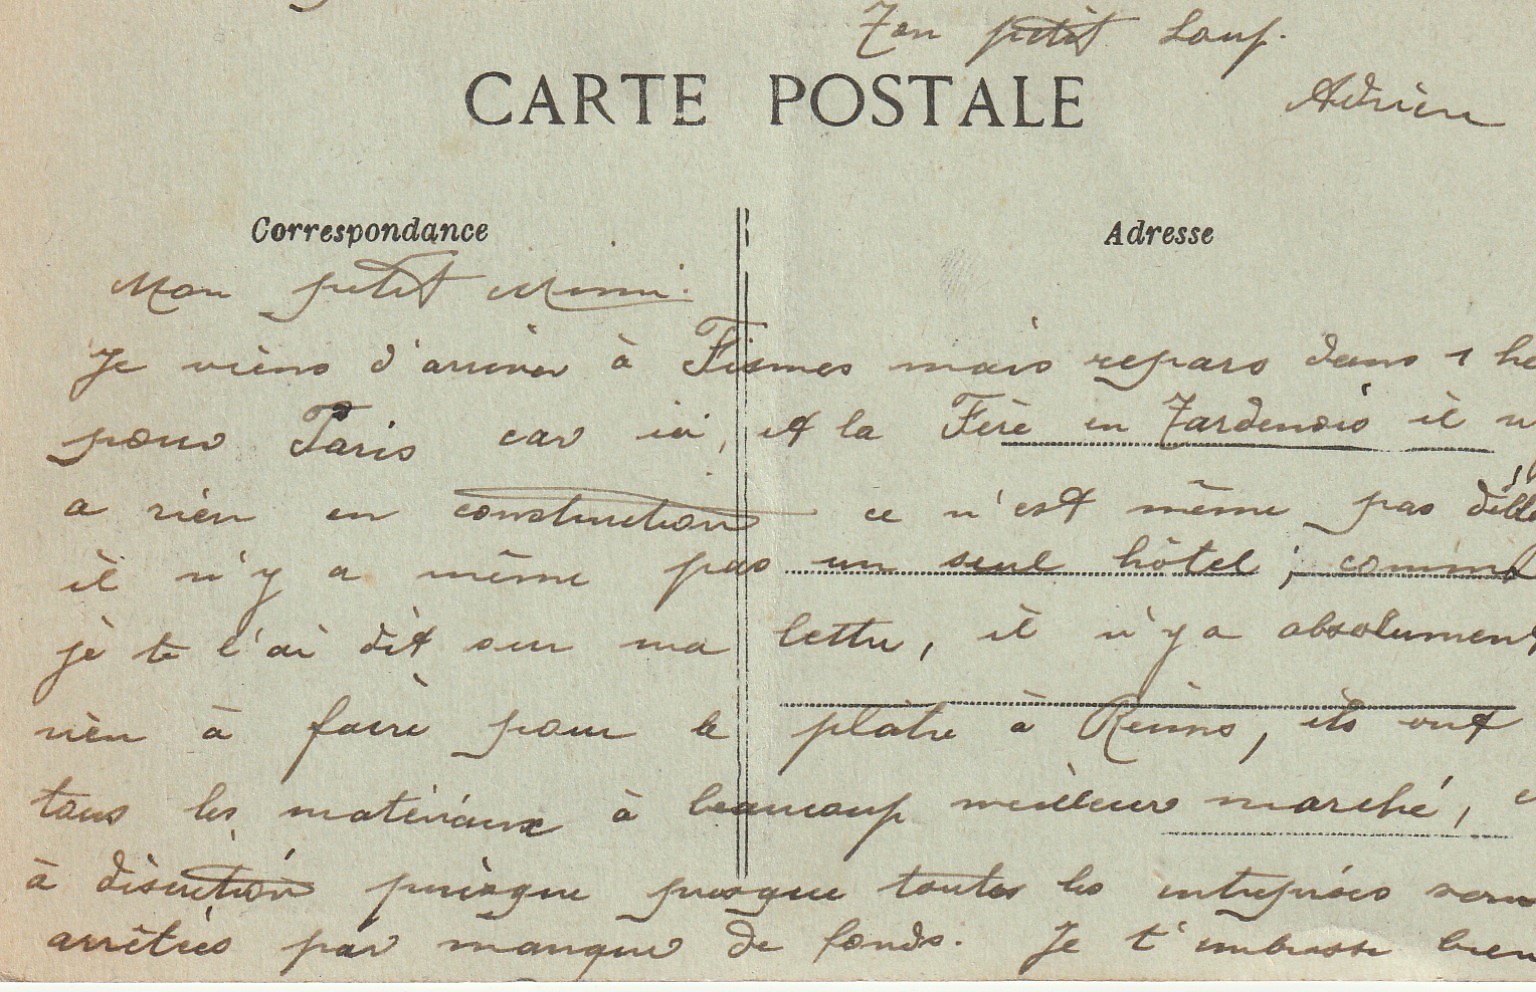 Ton petit Loup.
CARTE POSTALE
Adrien
Correspondance
Adresse
Mon petit Mimi.
Je viens d'arriver à Fismes mais repars dans 1 he
pour Paris car ici, et la Fère en Tardenois il n'y
a rien en construction ce n'est même pas débl
il n'y a même pas un seul hôtel ; comme
je te l'ai dit sur ma lettre, il n'y a absolument
rien à faire pour le plâtre à Reims, ils ont
tous les matériaux à beaucoup meilleur marché, e
à discrétion puisque presque toutes les entreprises son
arrêtées par manque de fonds. Je t'embrasse bien